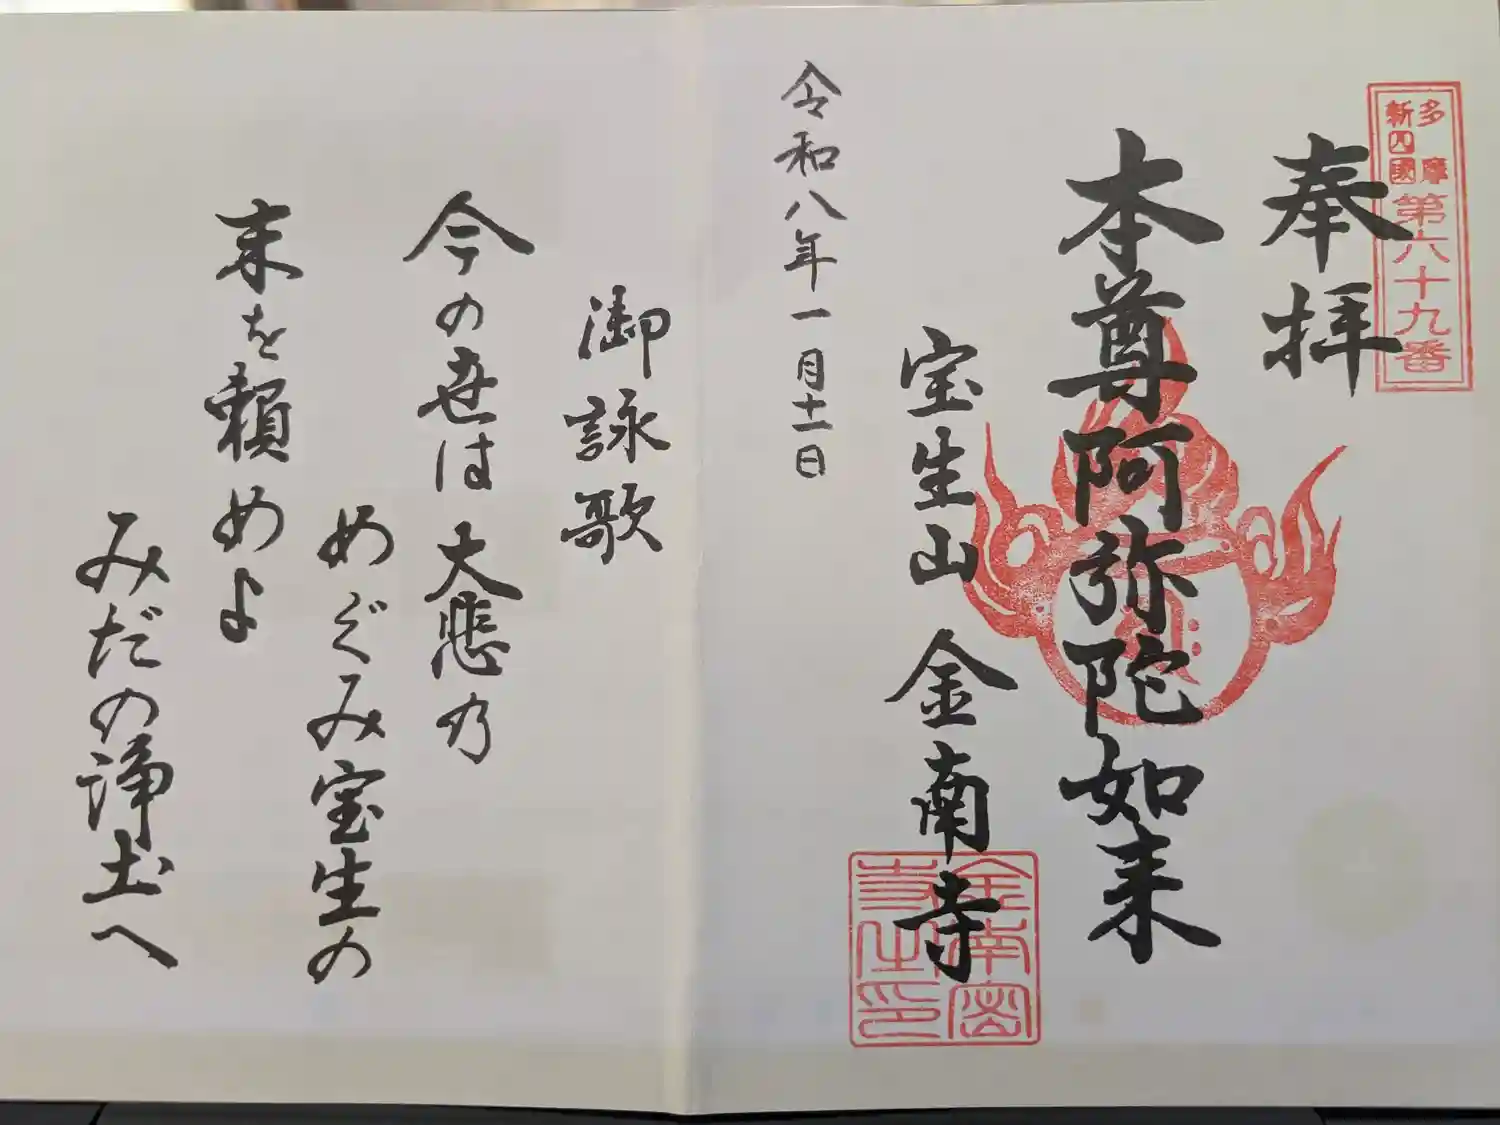 多摩
新四國
第六十九番
奉拝
本尊阿弥陀如来
宝生山 金南寺
令和八年一月十一日
御詠歌
今の世は大悲乃
めぐみ宝生の
末を頼めよ
みだの浄土へ